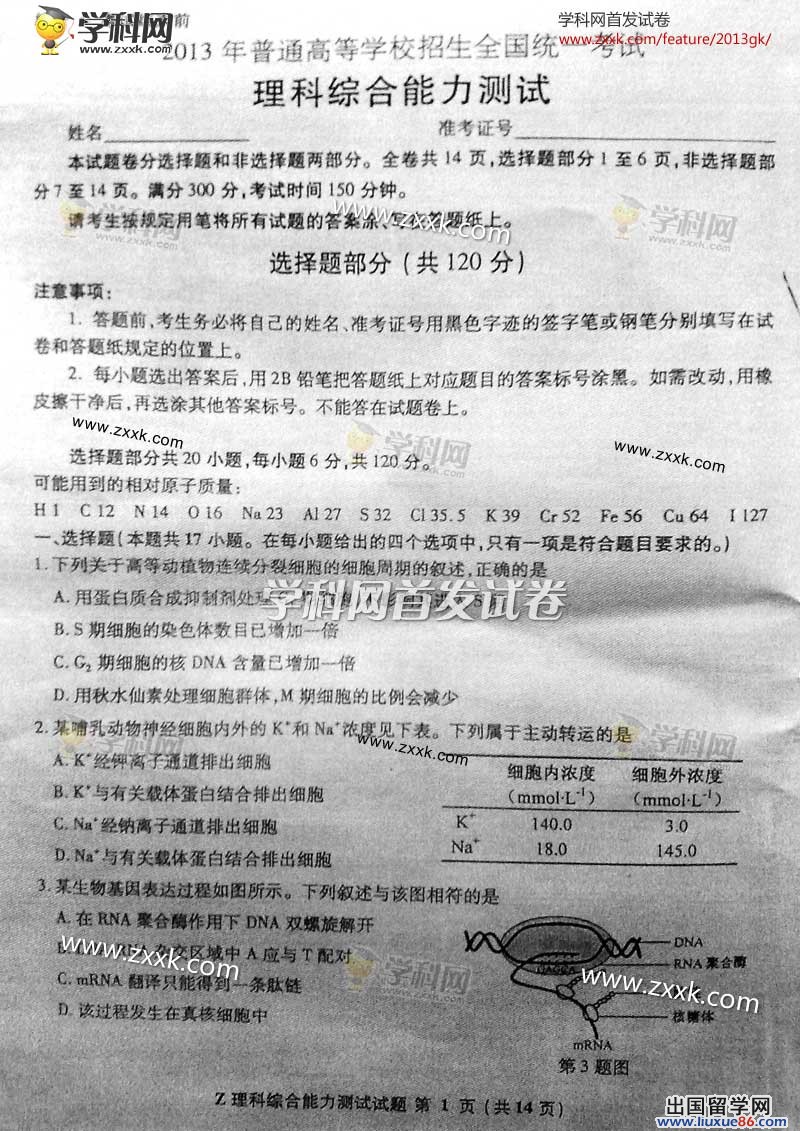 学科网
www.zxxk.com
前
学科网首发试卷
www.zxxk.com/feature/2013gk/
2013年普通高等学校招生全国统一考试
理科综合能力测试
姓名
准考证号
本试题卷分选择题和非选择题两部分。全卷共14页,选择题部分1至6页,非选择题部
分7至14页。满分300分,考试时间150分钟。
请考生按规定用笔将所有试题的答案涂、写在答题纸上。
www.zxxk.com
学科网
www.zxxk.com
选择题部分(共120分)
注意事项:
1. 答题前,考生务必将自己的姓名、准考证号用黑色字迹的签字笔或钢笔分别填写在试
卷和答题纸规定的位置上。
2. 每小题选出答案后,用2B铅笔把答题纸上对应题目的答案标号涂黑。如需改动,用橡
皮擦干净后,再选涂其他答案标号。不能答在试题卷上。
www.zxxk.com
学科网
www.zxxk.com
www.zxxk.com
选择题部分共20小题,每小题6分,共120分。
可能用到的相对原子质量:
H 1 C 12 N 14 O 16 Na 23 Al 27 S 32 Cl 35.5 K 39 Cr 52 Fe 56 Cu 64 I 127
一、选择题(本题共17小题。在每小题给出的四个选项中,只有一项是符合题目要求的。)
1. 下列关于高等动植物连续分裂细胞的细胞周期的叙述,正确的是
A. 用蛋白质合成抑制剂处理
学科网首发试卷
B. S期细胞的染色体数目已增加一倍
C. G₂期细胞的核DNA含量已增加一倍
D. 用秋水仙素处理细胞群体,M期细胞的比例会减少
2. 某哺乳动物神经细胞内外的K⁺和Na⁺浓度见下表。下列属于主动转运的是
www.zxxk.com
学科网
www.zxxk.com
A. K⁺经钾离子通道排出细胞
B. K⁺与有关载体蛋白结合排出细胞
C. Na⁺经钠离子通道排出细胞
D. Na⁺与有关载体蛋白结合排出细胞
细胞内浓度 细胞外浓度
(mmol·L⁻¹) (mmol·L⁻¹)
K⁺ 140.0 3.0
Na⁺ 18.0 145.0
3. 某生物基因表达过程如图所示。下列叙述与该图相符的是
A. 在RNA聚合酶作用下DNA双螺旋解开
杂交区域中A应与T配对
C. mRNA翻译只能得到一条肽链
D. 该过程发生在真核细胞中
www.zxxk.com
学科网
www.zxxk.com
DNA
RNA聚合酶
www.zxxk.com
核糖体
mRNA
第3题图
Z 理科综合能力测试试题 第 1 页(共14页)
出国留学网
www.liuxue86.com